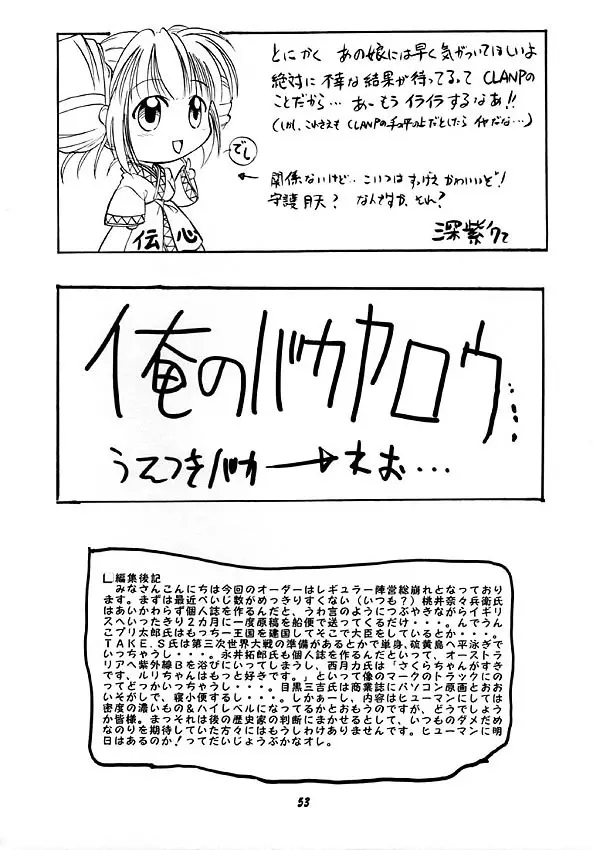 とにかく あの娘には早く気がついてほしいよ
絶対に不幸な結果が待ってるって CLANPの
ことだから… あーもう イライラするなあ!!
(しかし、これさえも CLANPの手の平の上だとしたら イヤだな…)
でし
← 関係ないけど… こいつは すっげえ かわいいぞ!
守護月天? なんですか、それ?
伝心
深紫
俺のバカヤロウ…
うえつきバカ → えお…
編集後記
みなさんこんにちは今回のオーダーはレギュラー陣営総崩れとなっており
ます。まずは最近ページ数がめっきり少ない(いつも?)桃井奈々兵衛氏
はあいかわらず個人誌を作るんだと、うわ言のようにつぶやきながらイギリ
スへいったきり2カ月に一度原稿を船便で送ってくるだけ・・・。んでうん
こプリ太郎氏はもっちー王国を建国してそこで大臣をしているとか・・・。
TAKE.S氏は第三次世界大戦の準備があるとかで単身、硫黄島へ平泳ぎで
いっちゃうし・・・。永井拓郎氏も個人誌を作るんだといって、オースト
リアへ紫外線Bを浴びにいってしまうし、西月力氏は「さくらちゃんがすき
です、ルリちゃんはもっと好きです。」といって像のマークのトラックにの
ってどっかいっちゃうし・・・。目黒三吉氏は商業誌にパソコン原画とおお
いそがしで、寝小便するし・・・。しかぁーし、内容はヒューマンにしては
密度の濃いもの&ハイレベルになってるかとおもうのですが、どうでしょう
か皆様。まっそれは後の歴史家の判断にまかせるとして、いつものダメだめ
なのりを期待していた方々にはもうしわけありません です。ヒューマンに明
日はあるのか!ってだいじょうぶかなオレ。
53